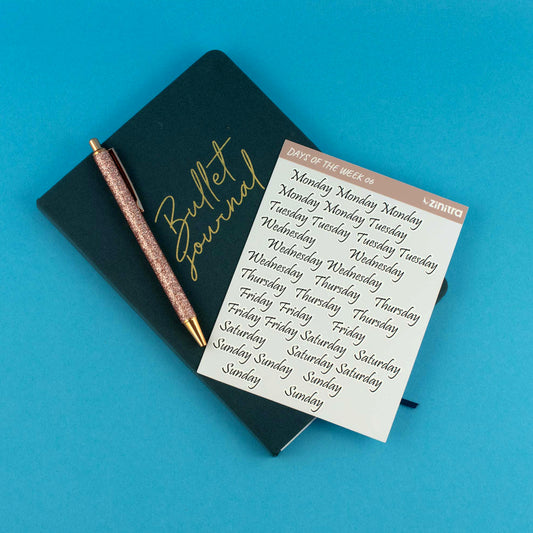 Bullet
Journal
DAYS OF THE WEEK 06
zinitra
Monday Monday Monday
Monday Monday Tuesday
Tuesday Tuesday Tuesday Tuesday
Wednesday Wednesday
Wednesday Wednesday
Wednesday Thursday
Thursday Thursday Thursday
Friday Friday Thursday
Friday Friday Saturday Friday
Saturday Saturday Saturday
Sunday Sunday Saturday
Sunday Sunday
Sunday